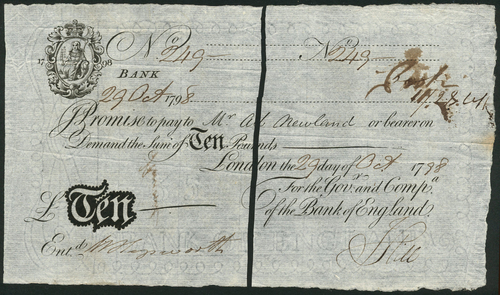 No 249 No 249
17 98
BANK
29 Oct 1798
I Promise to pay to Mr Abm Newland or bearer on
Demand the Sum of Ten Pounds
London the 29 day of Oct 1798
For the Govr and Compa
£ Ten
of the Bank of England.
Entd